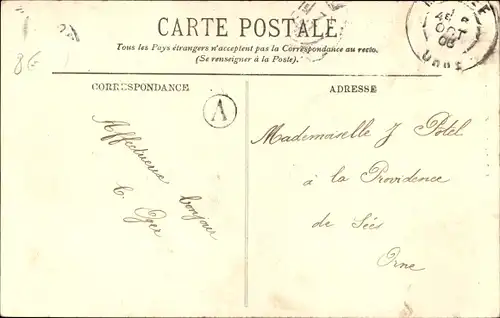 CARTE POSTALE
Tous les Pays étrangers n'acceptent pas la Correspondance au recto.
(Se renseigner à la Poste).
CORRESPONDANCE
ADRESSE
A
Affectueux bonjour
Mademoiselle J Potel
à la Providence
de Sées
Orne
OCT
06
ORNE